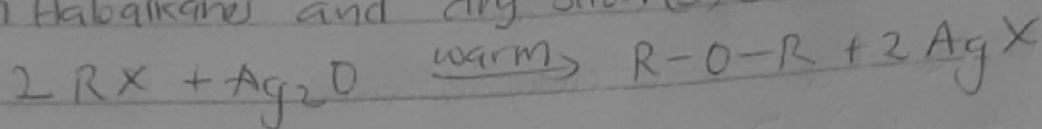 Haloalkanes and dry
2 RX + Ag₂O warm→ R-O-R + 2 AgX